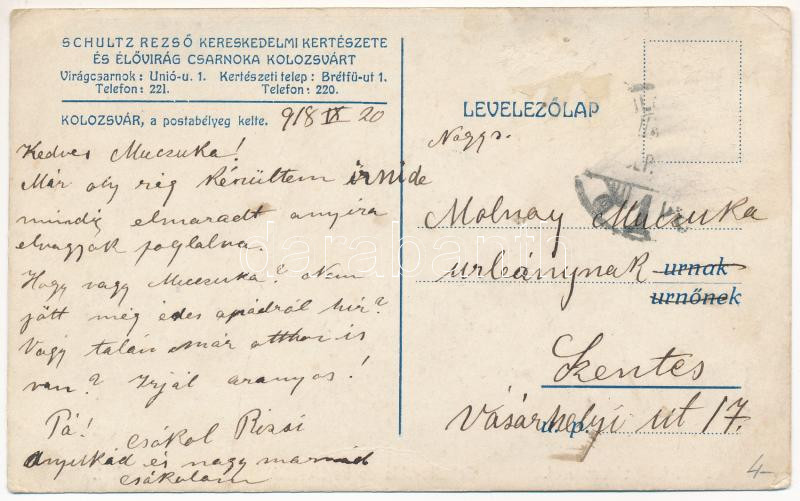 SCHULTZ REZSŐ KERESKEDELMI KERTÉSZETE
ÉS ÉLŐVIRÁG CSARNOKA KOLOZSVÁRT
Virágcsarnok: Unió-u. 1. Kertészeti telep: Brétfű-ut 1.
Telefon: 221. Telefon: 220.
KOLOZSVÁR, a postabélyeg kelte. 918 IX 20
Kedves Muczuka!
Már oly rég készültem írni de
mindig elmaradt anyira
elvagyok foglalva.
Hogy vagy Muczuka? Nem
jött még édes apádról hír?
Vagy talán már otthon is
van? Irjál aranyos!
Pá! csókol Rizsi
Anyukád és nagy mamád
csókolom
LEVELEZŐLAP
Nagys.
Molnay Muczuka
urleánynak urnak
urnőnek
Szentes
Vásárhelyi ut 17.
u. p.
4-
darabanth